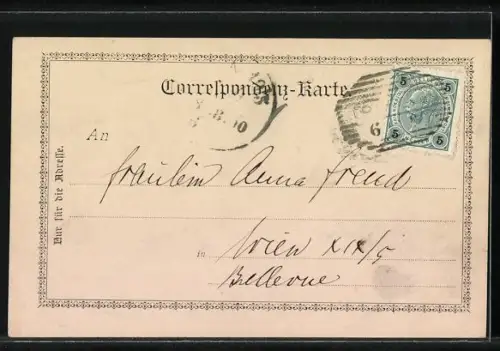 Correspondenz-Karte
5 5
5 5
6
An
Fräulein Anna Freud
in Wien XIX/5
Bellevue
Nur für die Adresse.